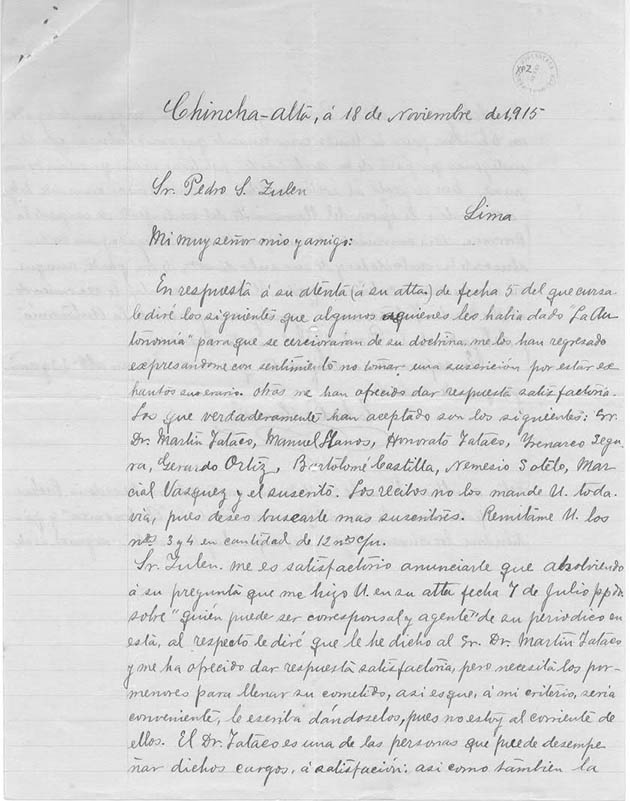 Chincha-alta, á 18 de Noviembre de 1,915
XPZ
Sr. Pedro S. Zulen
Lima
Mi muy señor mio y amigo:
En respuesta á su atenta (á su atta.) de fecha 5 del que cursa
le diré los siguientes que algunos a quienes les habia dado "La Au-
tonomia" para que se cercioráran de su doctrina me los han regresado
expresandome con sentimiento no tomar una suscrición por estar ex-
haustos su erario. Otros me han ofrecido dar respuesta satisfactoria.
Los que verdaderamente han aceptado son los siguientes: Sr.
Dr. Martin Tataco, Manuel Llanos, Honorato Tataco, Segu-
ra, Gerardo Ortiz, Bartolomé Castilla, Nemesio Sotelo, Mar-
cial Vasquez y el suscrito. Los recibos no los mande U. toda-
via, pues deseo buscarle mas suscritores. Remitame U. los
nros 3 y 4 en cantidad de 12 nros c/u.
Sr. Zulen. me es satisfactorio anunciarle que absolviendo
á su pregunta que me hizo U. en su atta fecha 7 de Julio ppdo.
sobre "quién puede ser corresponsal y agente" de su periodico en
esta, al respecto le diré que le he dicho al Sr. Dr. Martin Tataco
y me ha ofrecido dar respuesta satisfactoria, pero necesita los por-
menores para llenar su cometido, asi es que, á mi criterio, seria
conveniente, le escriba dándoselos, pues no estoy al corriente de
ellos. El Dr. Tataco es una de las personas que puede desempe-
ñar dichos cargos, á satisfacción; asi como tambien la